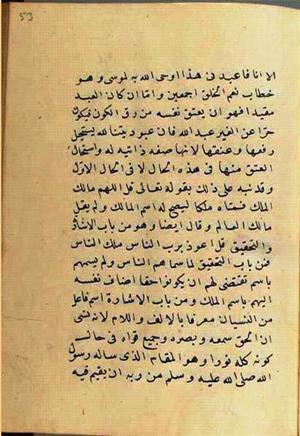 ٥٣
الا انا فاعبدنى هذا اوحى الله به لموسى وهو
خطاب نعم الخلق اجمعين واما ان كان العبد
مقيدا فهو ان يعتق نفسه من رق الكون فيكون
حرا عن الغير عبد الله فان عبوديتنا لله يستحيل
رفعها وعتقها لانها صفة ذاتية له واستحال
العتق منها فى هذه الحال لا فى الحال الاول
وقد نبه على ذلك بقوله تعالى قل اللهم مالك
الملك فسماه ملكا ليصح له اسم المالك ولم يقل
مالك العالم وقال ايضا وهو من باب الاشارة
والتحقيق قل اعوذ برب الناس ملك الناس
فمن باب التحقيق لما سماهم الناس ولم يسمهم
باسم تقتضى لهم ان يكونوا حقا اضاف نفسه
اليهم باسم الملك ومن باب الاشارة اسم فاعل
من النسيان معرفا بالالف واللام لانه نسى
ان الحق سمعه وبصره وجميع قواه فى حالة
كونه كله نورا وهو المقام الذى ساله رسول
الله صلى الله عليه وسلم من ربه ان يقيم فيه